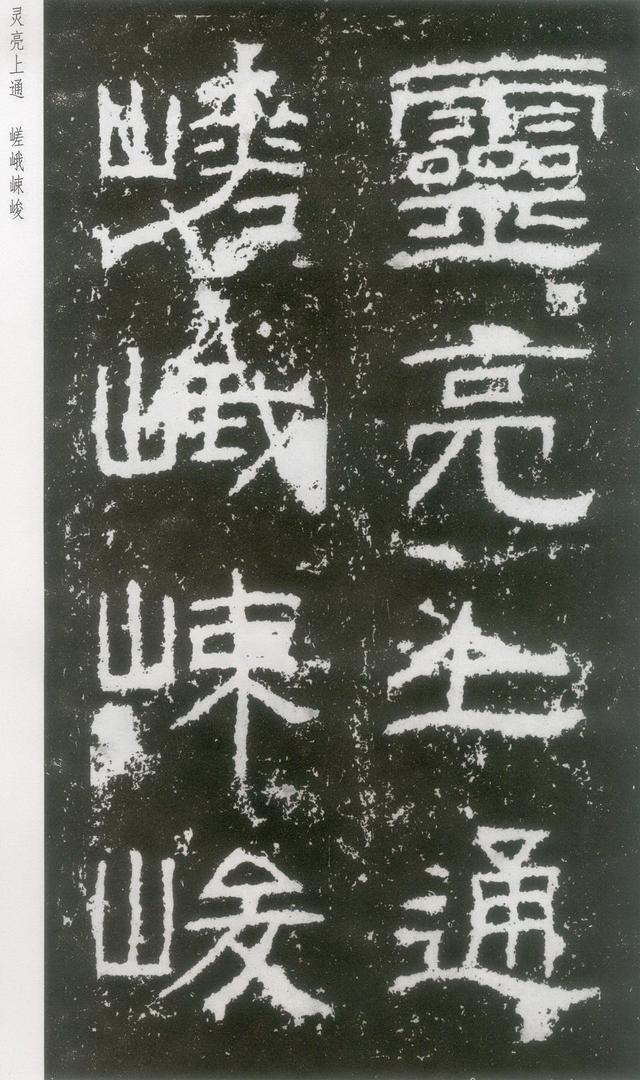 靈亮上通
嵯峨崠峻
灵亮上通 嵯峨崠峻